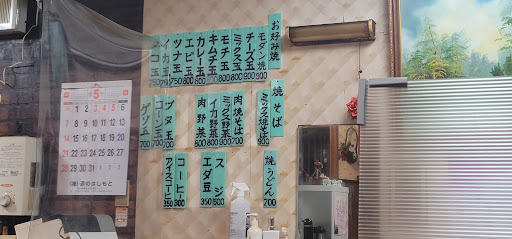 お好み焼
モダン焼 900
チーズ玉 900
ミックス玉 900
モチ玉 800
キムチ玉
カレー玉 800
エビ玉 800
ツナ玉 750
イカ玉 750
ブタ玉 700
コーン玉 700
ゲソ玉 700
焼そば
ミックス焼そば 900
肉焼そば 700
ミックス野菜 900
イカ野菜 800
肉野菜 800
焼うどん 700
スジ 500
エダ豆 350
コーヒー 300
アイスコーヒー 350
5
1 2 3 4 5 6
7 8 9 10 11 12 13
14 15 16 17 18 19 20
21 22 23 24 25 26 27
28 29 30 31
酒のはしもと